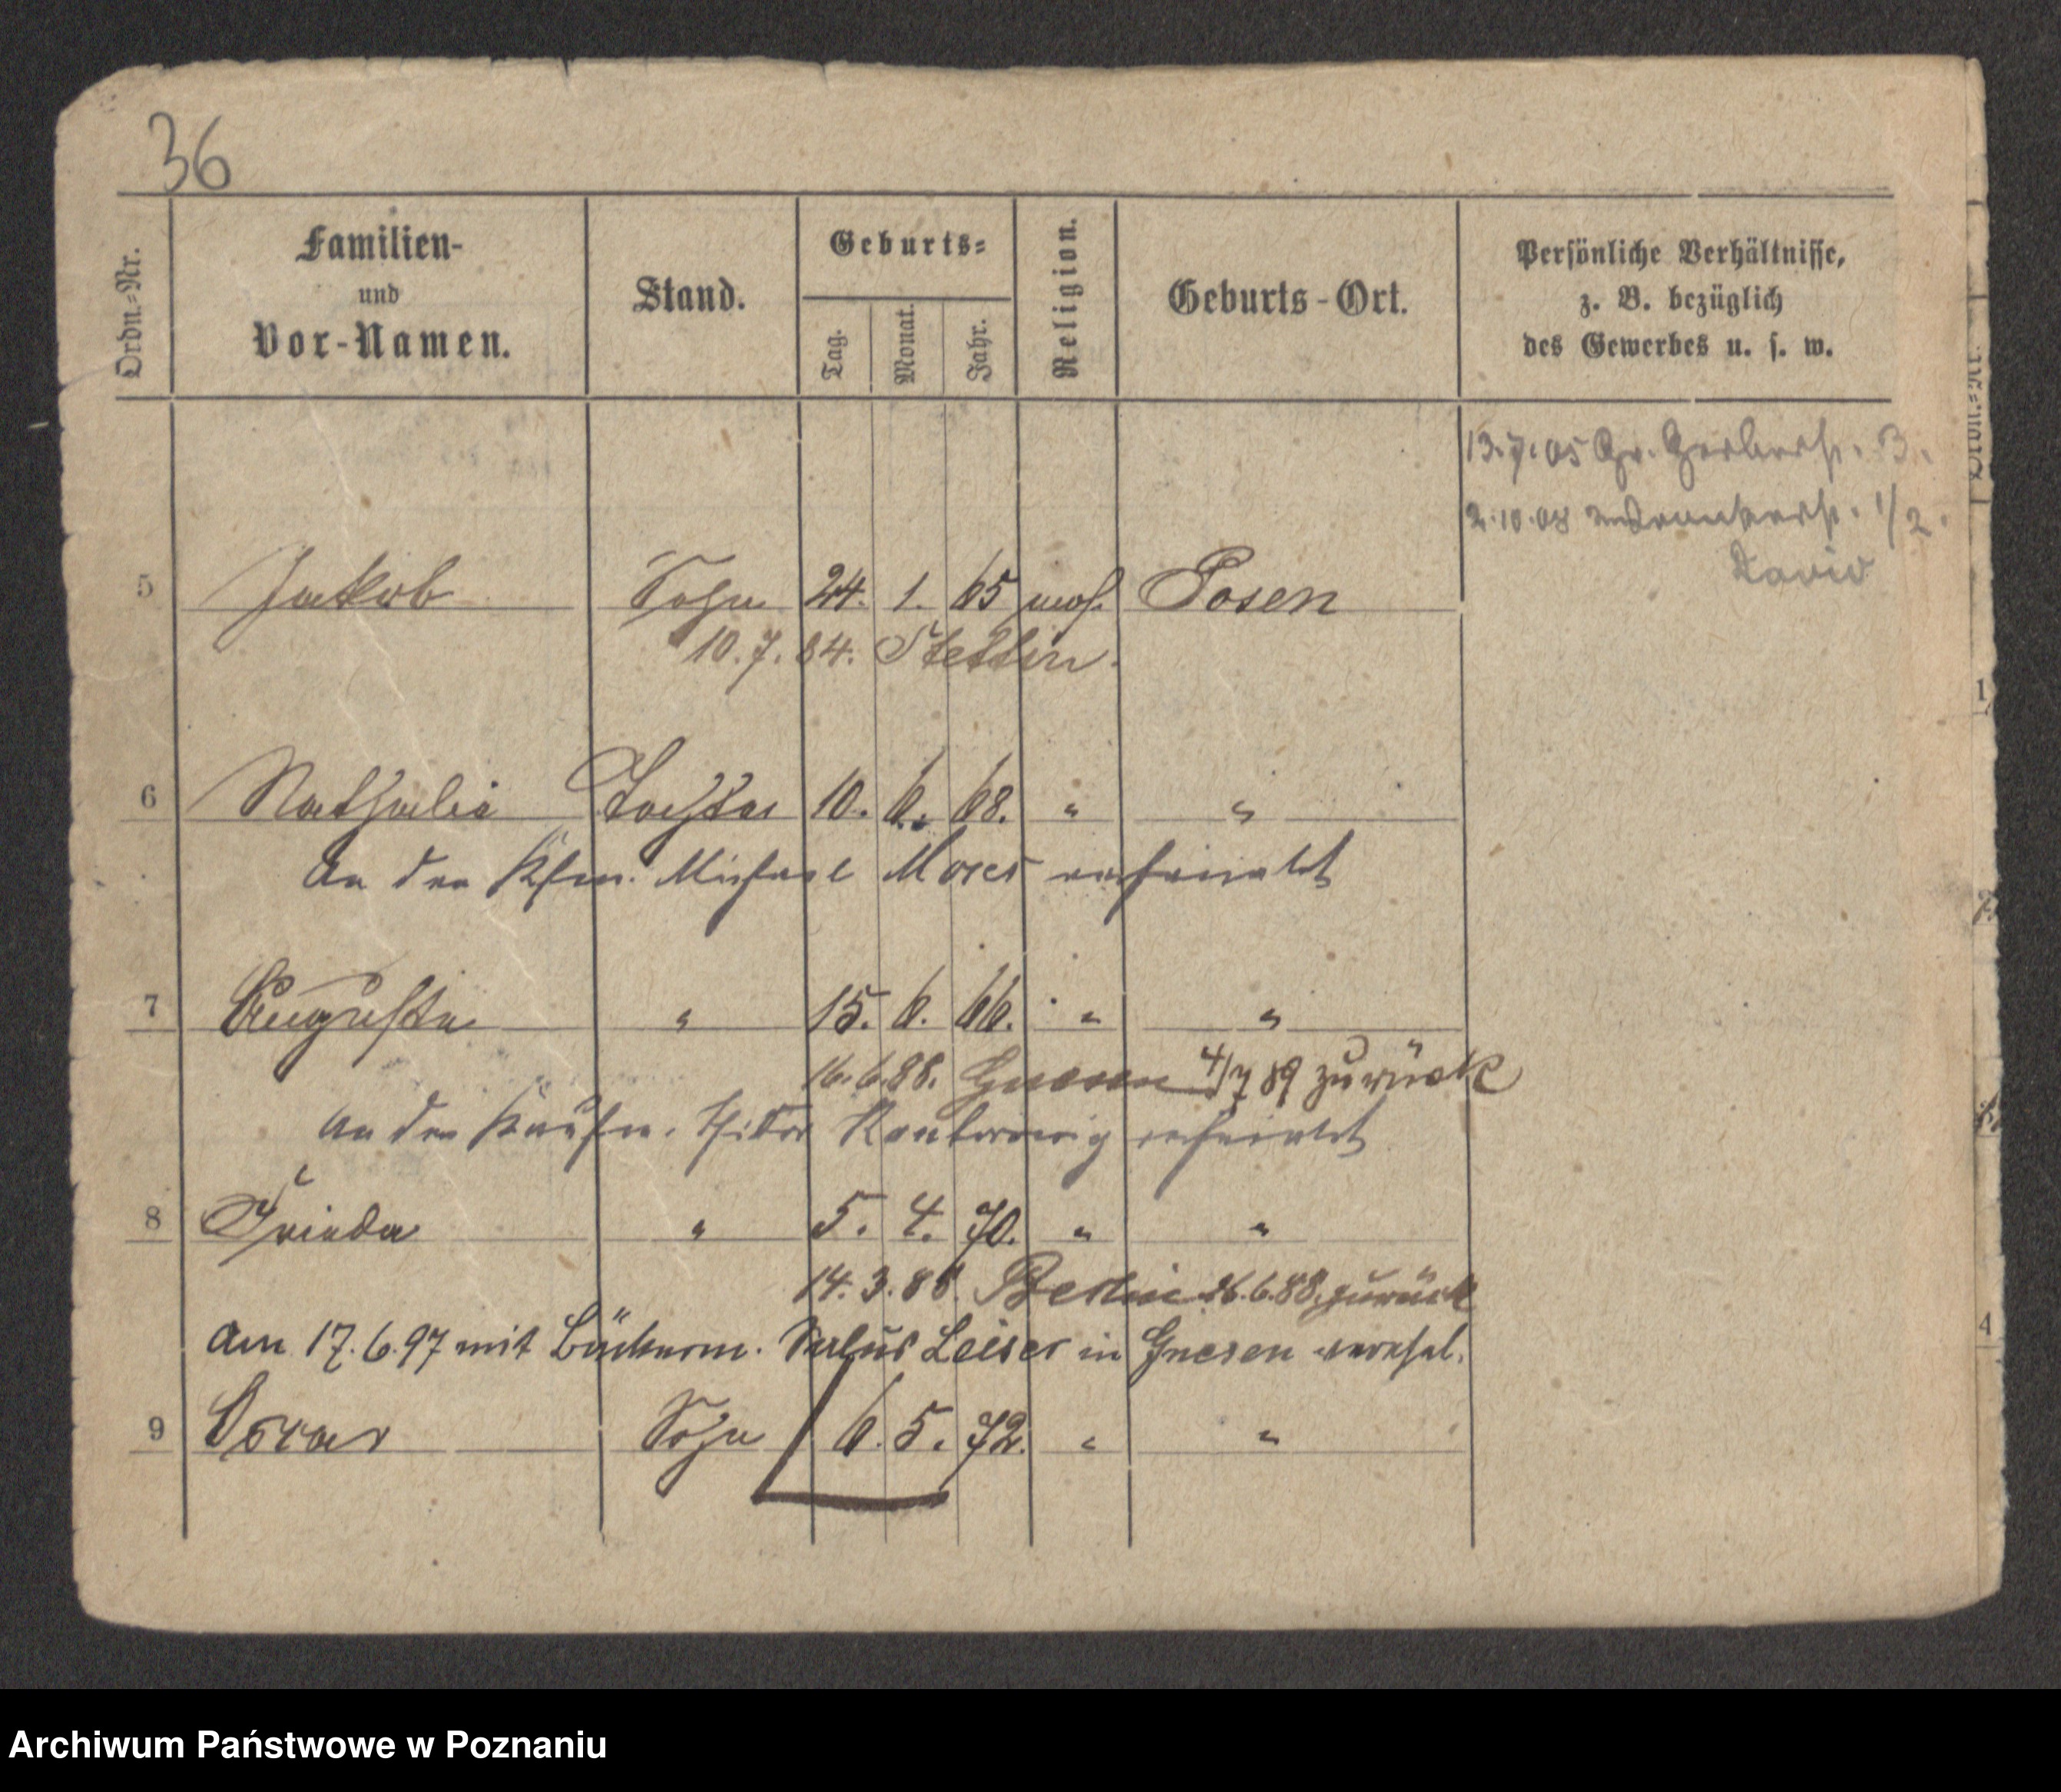 36
Ordn.-Nr.
Familien-
und
Vor-Namen.
Stand.
Geburts-
Tag.
Monat.
Jahr.
Religion.
Geburts-Ort.
Persönliche Verhältnisse,
z. B. bezüglich
des Gewerbes u. s. w.
13.7.05 Gr. Gerberstr. 3.
2.10.08 1/2.
David
5 Jakob Sohn 24. 1. 65 mos. Posen
10.7.84. Stettin.
6 Nathalie Tochter 10. 6. 68. " "
An den Kfm. Michael Moses verheirathet
7 Auguste " 15. 6. 66. " "
16.6.88. Gnesen 4/7 89 zurück
An den Kaufm. Isidor verheirathet
8 Frieda " 5. 4. 70. " "
14.3.88. Berlin 26.6.88. zurück
Am 17.6.97 mit Bäckerm. Julius Leiser in Gnesen verehel.
9 Oscar Sohn 6. 5. 72. " "
Ordn.-Nr.
1
4
Archiwum Państwowe w Poznaniu